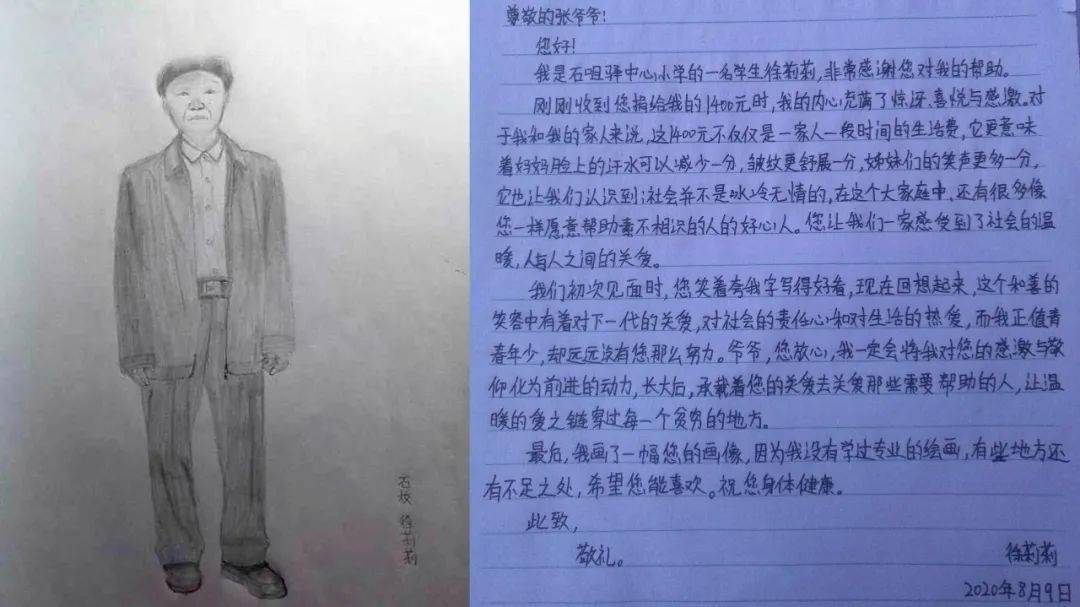 石坂
徐莉莉
尊敬的张爷爷!
您好!
我是石咀驿中心小学的一名学生徐莉莉,非常感谢您对我的帮助。
刚刚收到您捐给我的1400元时,我的内心充满了惊讶、喜悦与感激。对
于我和我的家人来说,这1400元不仅仅是一家人一段时间的生活费,它更意味
着妈妈脸上的汗水可以减少一分,皱纹更舒展一分,姊妹们的笑声更多一分。
它也让我们认识到社会并不是冰冷无情的,在这个大家庭中,还有很多像
您一样愿意帮助素不相识的人的好心人。您让我们一家感受到了社会的温
暖,人与人之间的关爱。
我们初次见面时,您笑着夸我字写得好看,现在回想起来,这个和善的
笑容中有着对下一代的关爱,对社会的责任心和对生活的热爱,而我正值青
春年少,却远远没有您那么努力。爷爷,您放心,我一定会将我对您的感激与敬
仰化为前进的动力,长大后,承载着您的关爱去关爱那些需要帮助的人,让温
暖的爱之链穿过每一个贫穷的地方。
最后,我画了一幅您的画像,因为我没有学过专业的绘画,有些地方还
有不足之处,希望您能喜欢。祝您身体健康。
此致,
敬礼。
徐莉莉
2020年8月9日